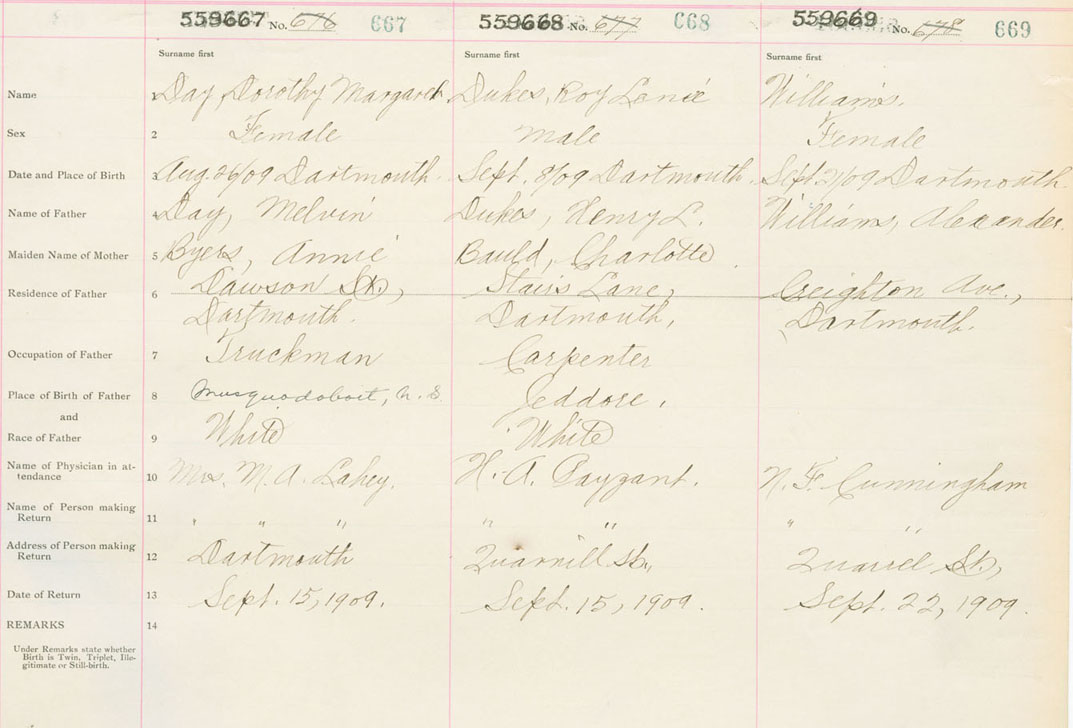 559667 No. 676 667 559668 No. 677 668 559669 No. 678 669
Surname first Surname first Surname first
Name 1 Day, Dorothy Margaret. Dukes, Roy Lenié Williams.
Sex 2 Female Male Female
Date and Place of Birth 3 Aug. 26/09 Dartmouth. Sept. 8/09 Dartmouth. Sept. 21/09 Dartmouth.
Name of Father 4 Day, Melvin Dukes, Henry L. Williams, Alexander.
Maiden Name of Mother 5 Byers, Annie Bauld, Charlotte.
Residence of Father 6 Dawson St., Stairs Lane, Creighton Ave.,
Dartmouth. Dartmouth, Dartmouth.
Occupation of Father 7 Truckman Carpenter
Place of Birth of Father 8 Musquodoboit, N.S. Jeddore.
and
Race of Father 9 White White
Name of Physician in at-
tendance 10 Mrs. M. A. Lahey. H. A. Payzant. N. F. Cunningham
Name of Person making
Return 11 " " " " " " "
Address of Person making
Return 12 Dartmouth Quarrill St., Quarrel St.,
Date of Return 13 Sept. 15, 1909. Sept. 15, 1909. Sept. 22, 1909.
REMARKS 14
Under Remarks state whether
Birth is Twin, Triplet, Ille-
gitimate or Still-birth.